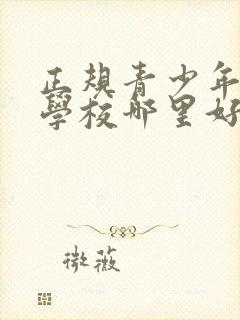 正規青少年
學校哪里好
微薇